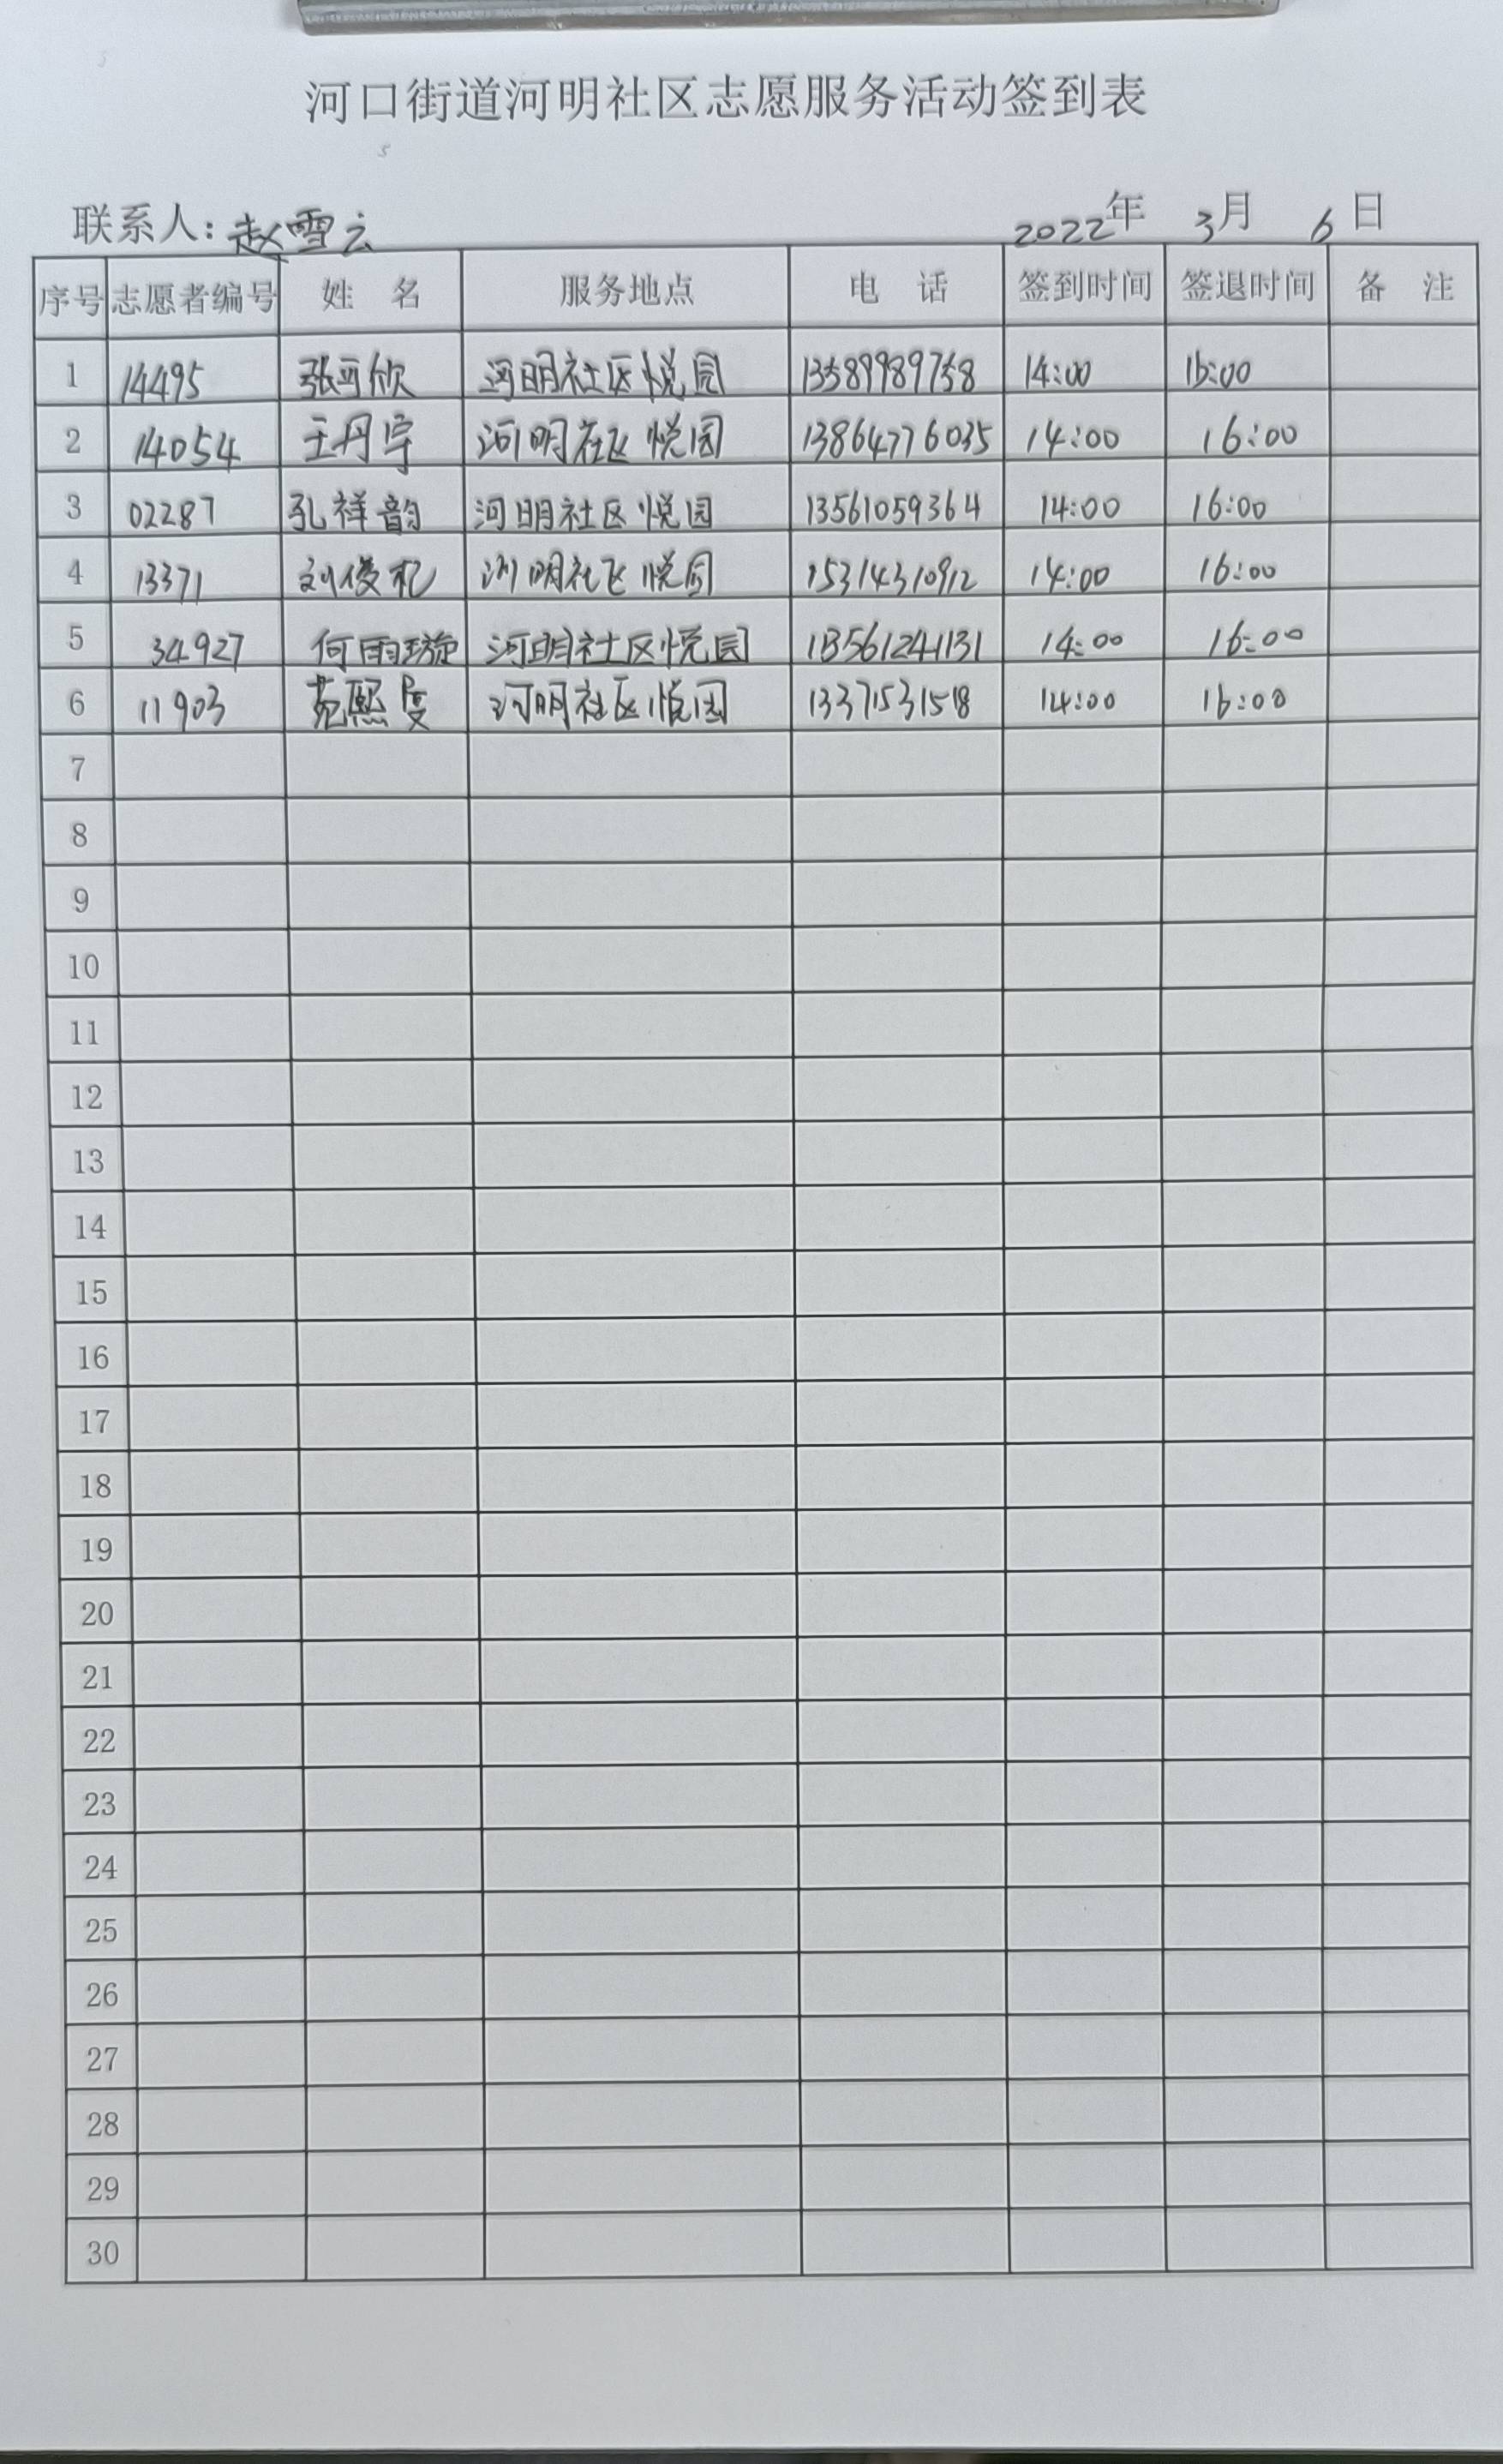 河口街道河明社区志愿服务活动签到表
联系人：赵雪云 2022年 3月 6日
序号 志愿者编号 姓 名 服务地点 电 话 签到时间 签退时间 备 注
1 14495 张可欣 河明社区悦园 13589989758 14:00 16:00
2 14054 王丹宇 河明社区悦园 13864776035 14:00 16:00
3 02287 孔祥韵 河明社区悦园 13561059364 14:00 16:00
4 13371 刘俊杞 河明社区悦园 15314310912 14:00 16:00
5 34927 何雨璇 河明社区悦园 13561241131 14:00 16:00
6 11903 苑熙旻 河明社区悦园 13371531518 14:00 16:00
7
8
9
10
11
12
13
14
15
16
17
18
19
20
21
22
23
24
25
26
27
28
29
30